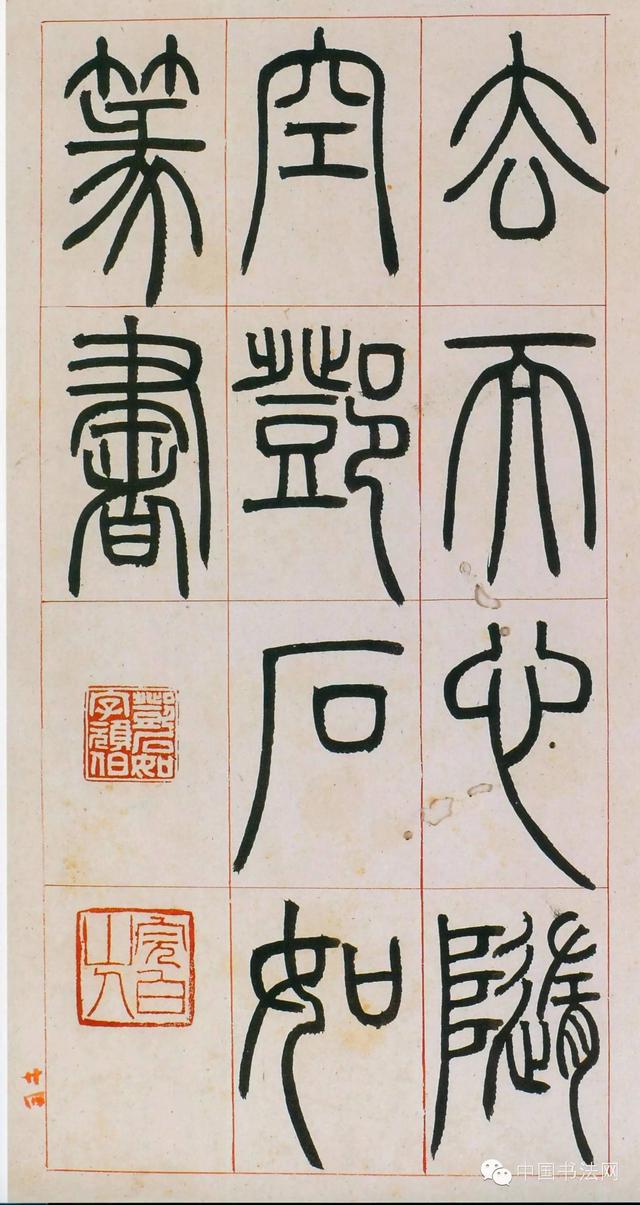 去而心隨
空鄧石如
篆書
鄧石如
字頑伯
完白
山人
廿四
中国书法网